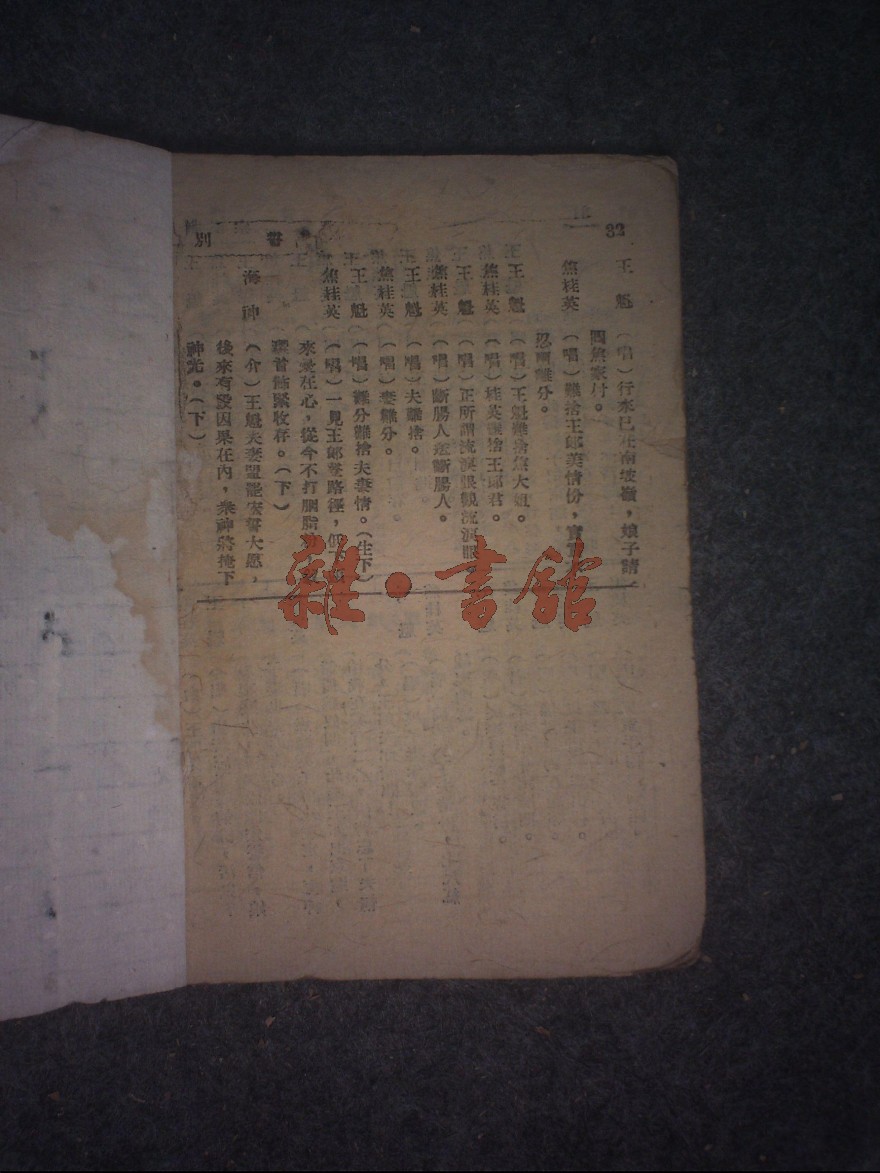 32
誓 別
王 魁 (唱)行來已在南坡嶺,娘子請
囬焦家付。
焦桂英 (唱)難捨王郎美情份,實實
忍
難分。
王 魁 (唱)王魁難捨焦大姐。
焦桂英 (唱)桂英難捨王郎君。
王 魁 (唱)正所謂流淚眼觀流淚眼
焦桂英 (唱)斷腸人送斷腸人。
王 魁 (唱)夫難捨。
焦桂英 (唱)妻難分。
王 魁 (唱)難分難捨夫妻情。(生下)
焦桂英 (唱)一見王郎登路徑,低下
來愛在心,從今不打胭脂
首飾緊收存。(下)
海 神 (介)王魁夫妻盟罷宏誓大愿,
後來有段因果在內,衆神將掩下
神光。(下)
雜·書館